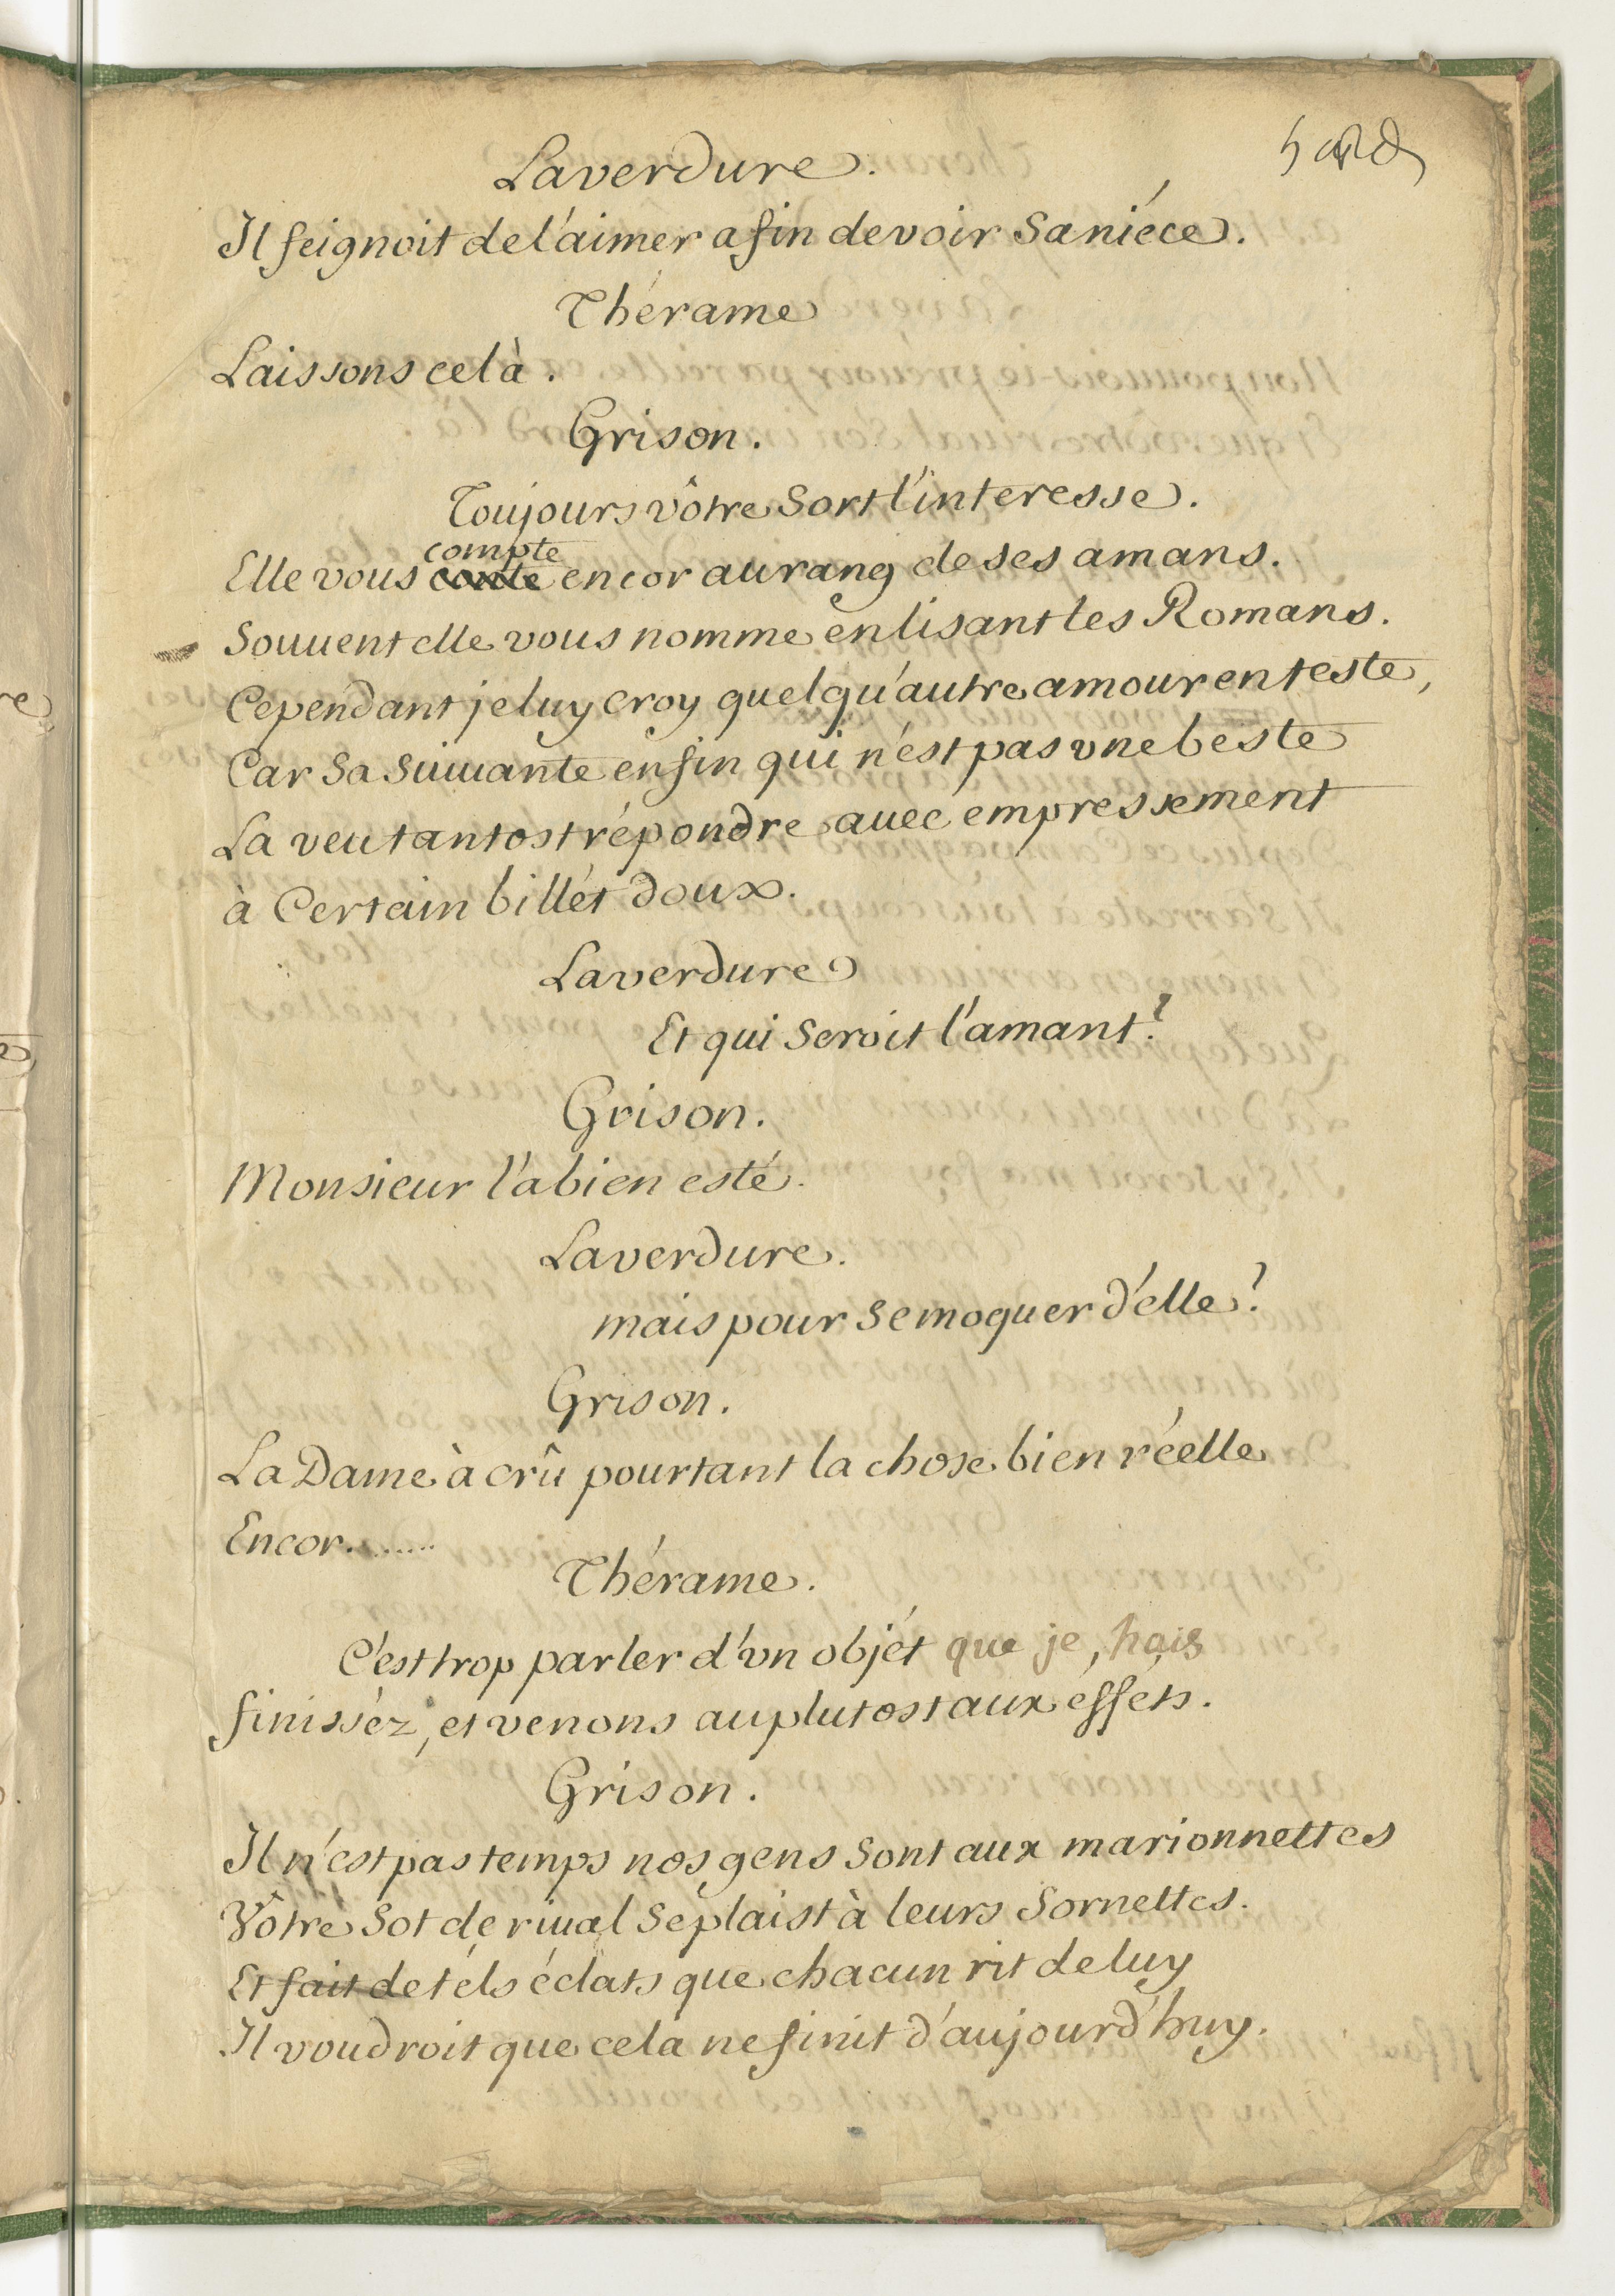 Laverdure.
Il feignoit de l'aimer afin de voir Sa niéce.
Thérame
Laissons celà.
Grison.
Toujours vôtre Sort l'interesse.
compte
Elle vous conte encor au rang de ses amans.
Souuent elle vous nomme en lisant les Romans.
Cependant je luy croy quelqu'autre amour en teste,
Car Sa Suiuante enfin qui n'est pas vne beste
La veu tantost répondre auec empressement
à Certain billét doux.
Laverdure
Et qui Seroit l'amant?
Grison.
Monsieur l'a bien esté.
Laverdure.
mais pour Se moquer d'elle?
Grison.
La Dame à crû pourtant la chose bien réelle
Encor........
Thérame.
C'est trop parler d'vn objét que je hais
finisséz, et venons au plutost aux éfféts.
Grison.
Il n'est pas temps nos gens Sont aux marionnettes
Vôtre Sot de riual Se plaist à leurs Sornettes.
Et fait de téls éclats que chacun rit de luy
Il voudroit que cela ne finit d'aujourd'huy.